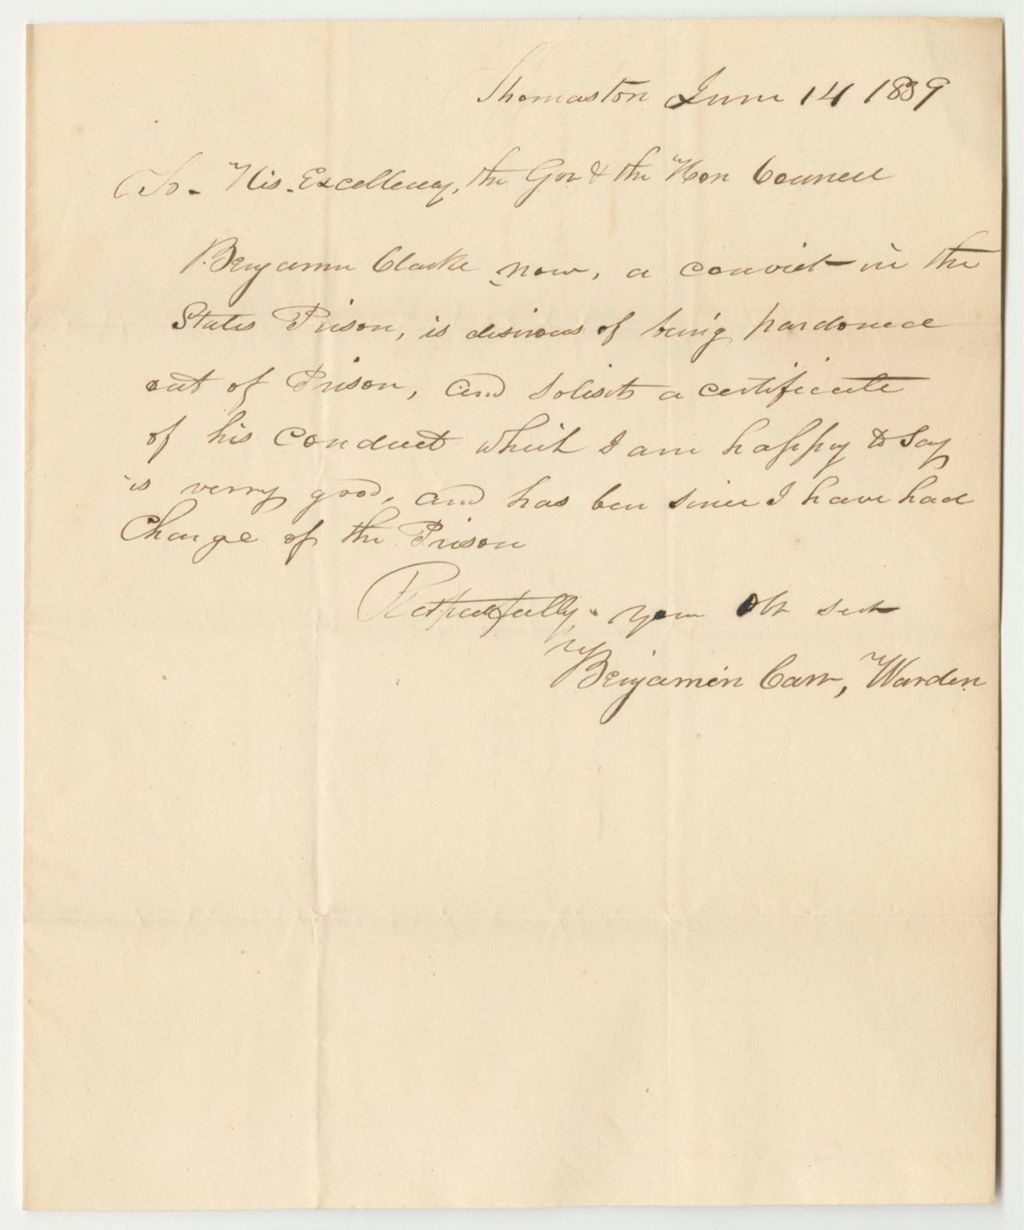 Thomaston June 14 1839
To - His Excellency, the Gov & the Hon Councell
Benjamin Clarke now, a convict in the
States Prison, is desirous of being pardoned
out of Prison, and Solisits a certificate
of his conduct which I am happy to Say
is verry good, and has ben since I have had
Charge of the Prison
Respectfully your Obt Sert
Benjamin Carr, Warden